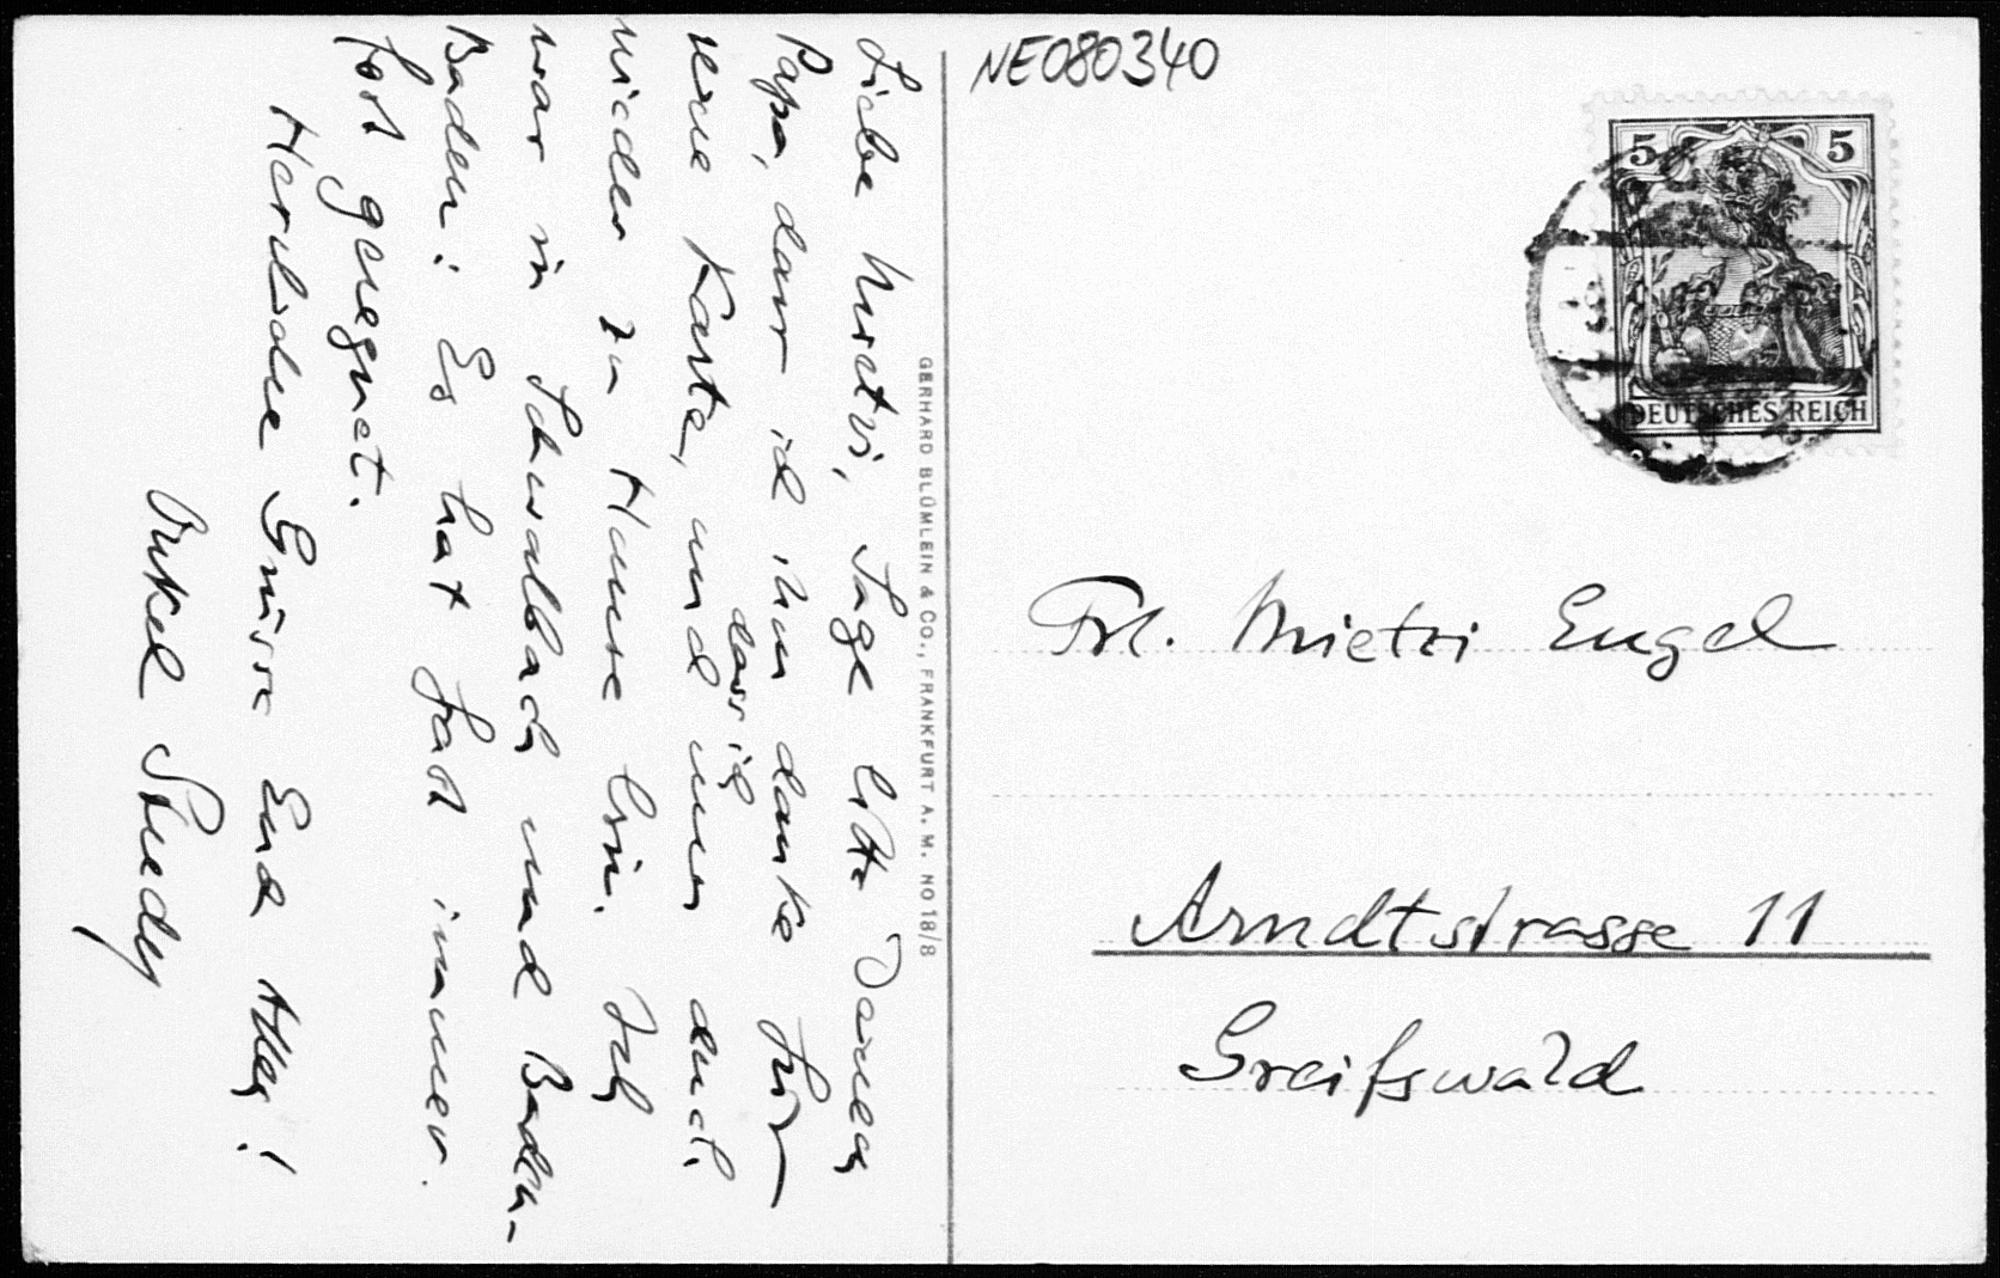 NE080340
5 5
DEUTSCHES REICH
Frl. Mietzi Engel
Arndtstrasse 11
Greifswald
GERHARD BLÜMLEIN & Co., FRANKFURT A. M. NO 18/8
Liebe Mietzi, Sage bitte Deinem
Papa, dass ich ihm danke für
seine Karte, und
dass ich
nun auch
wieder zu Hause bin. Ich
war in Schwalbach und Baden-
Baden: Es hat fast immer
fort geregnet.
Herzliche Grüsse Euch Allen!
Onkel Studdy